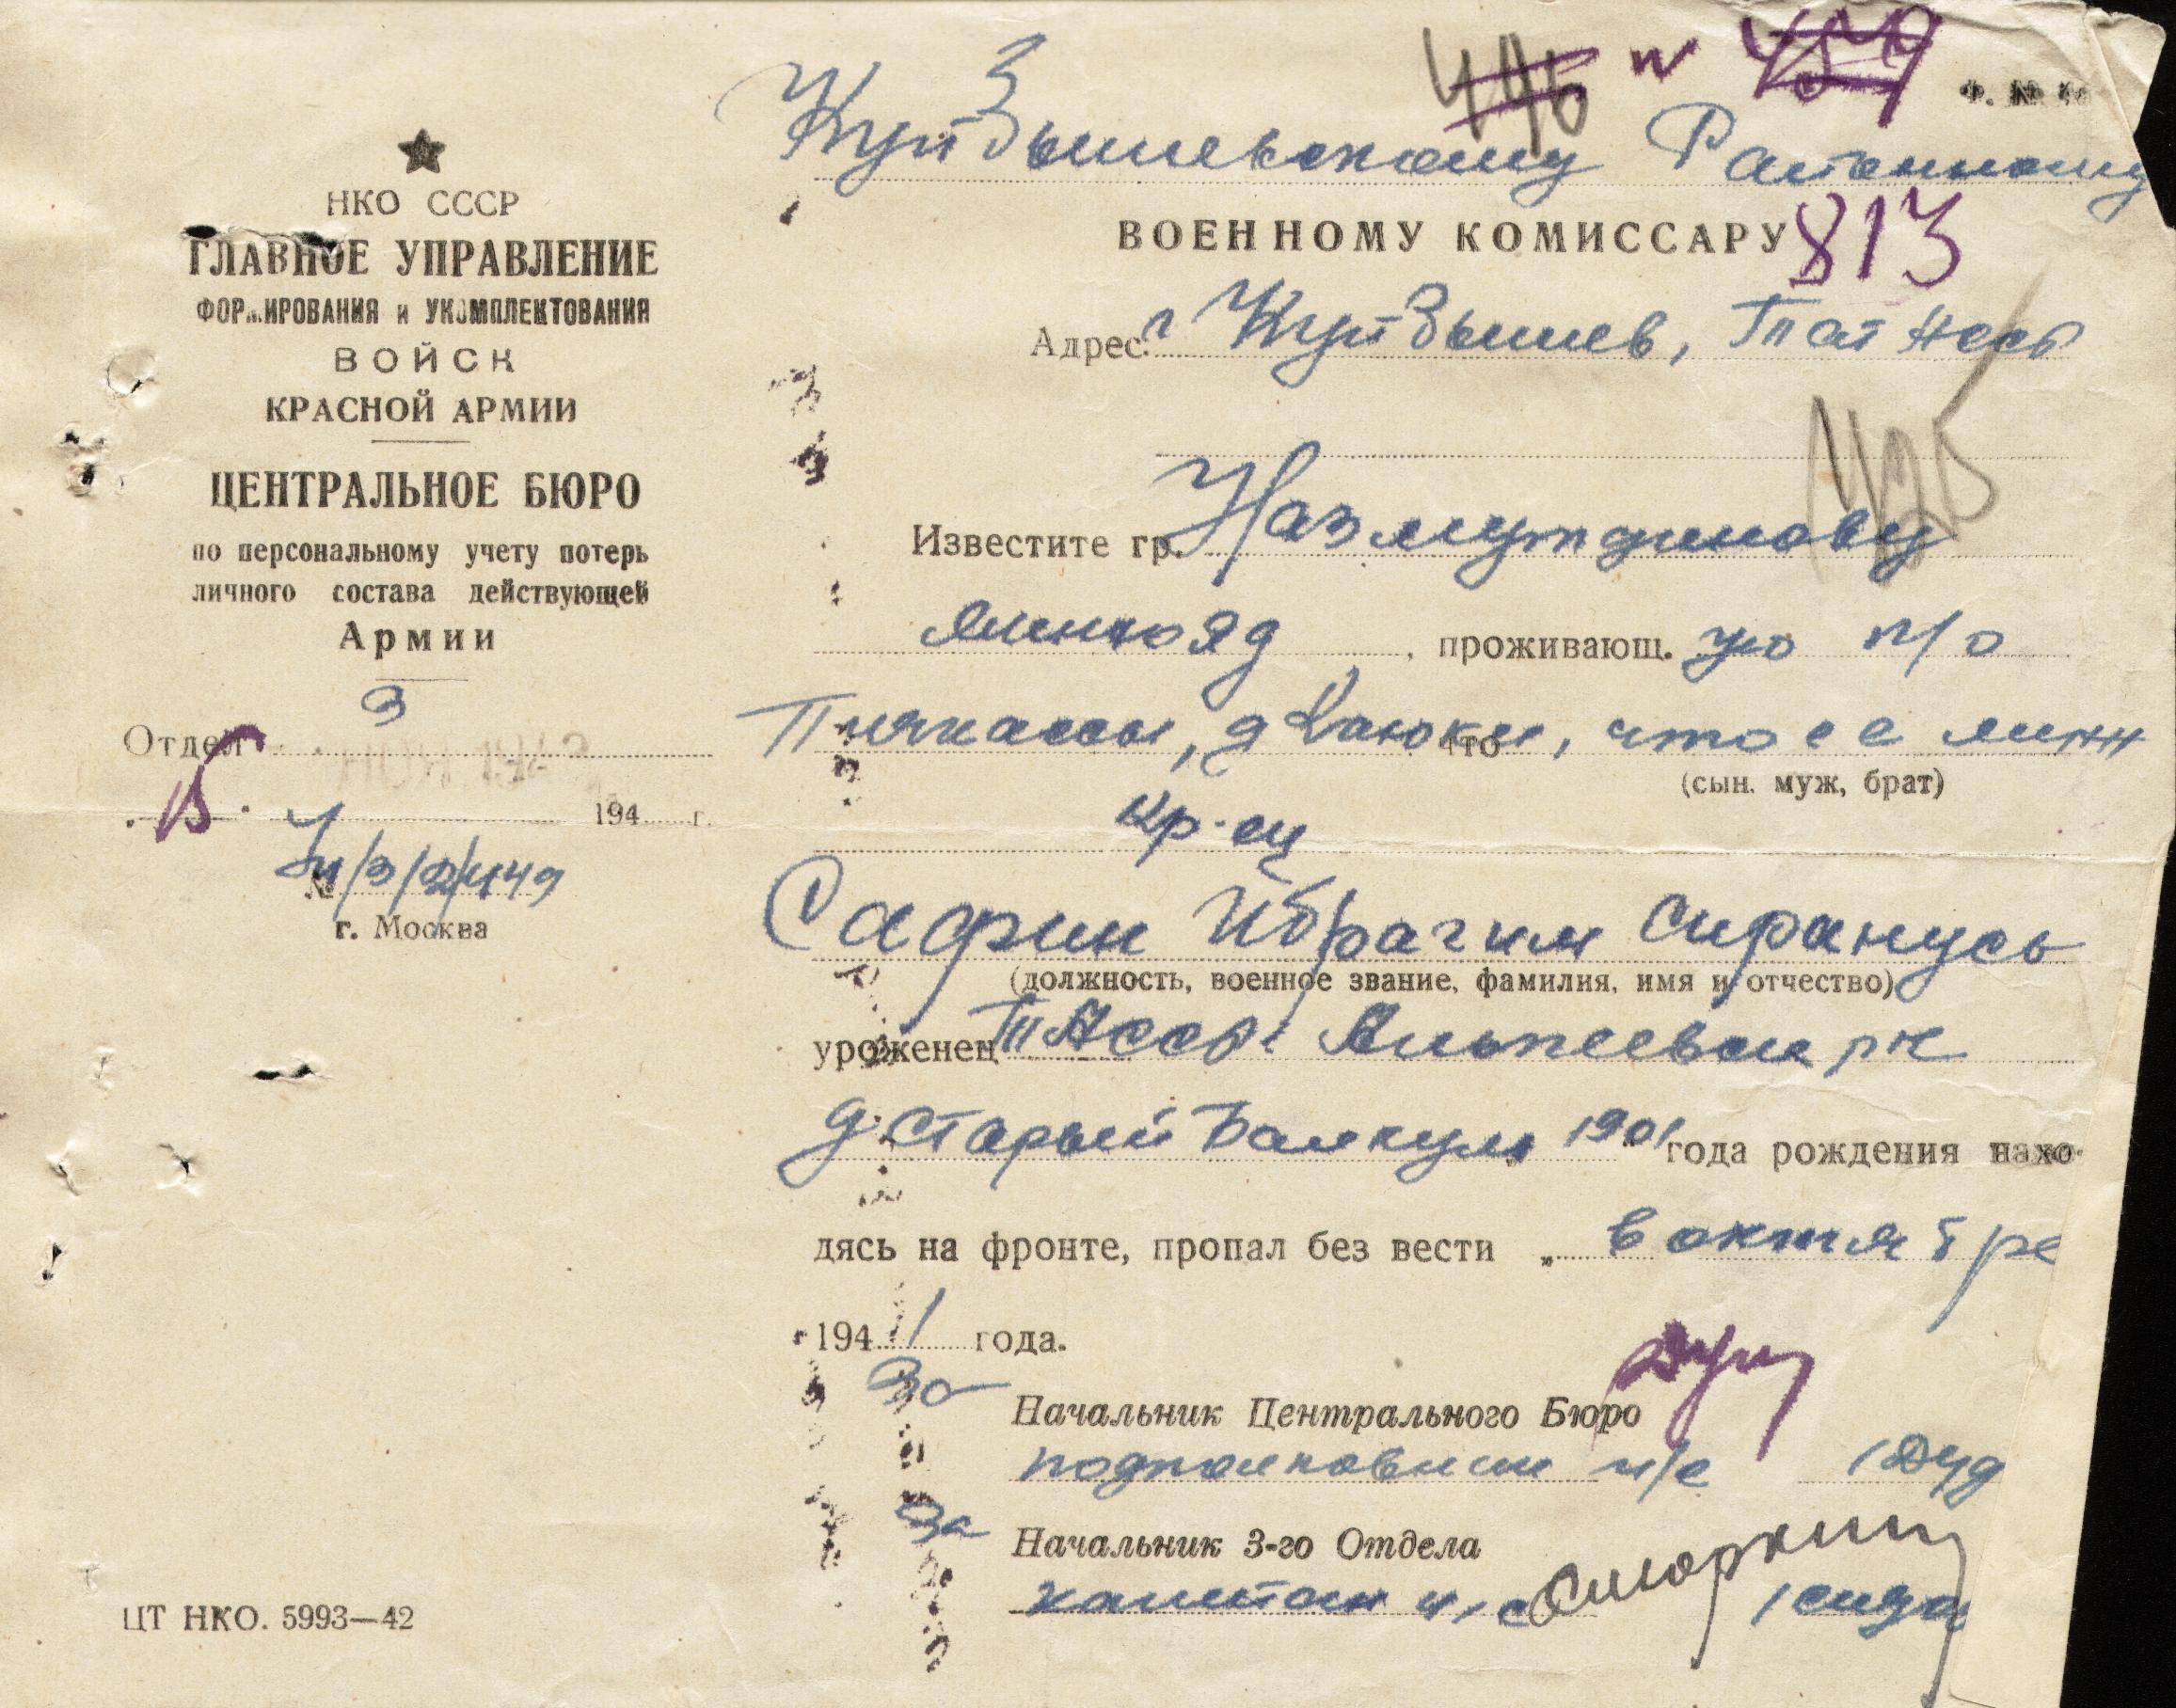 446 и 459
Ф. №
Куйбышевскому Районному
ВОЕННОМУ КОМИССАРУ
813
Адрес: г Куйбышев, Тат Асср
НКО СССР
ГЛАВНОЕ УПРАВЛЕНИЕ
ФОРМИРОВАНИЯ и УКОМПЛЕКТОВАНИЯ
ВОЙСК
КРАСНОЙ АРМИИ
ЦЕНТРАЛЬНОЕ БЮРО
по персональному учету потерь
личного состава действующей
Армии
Отдел 3
194 г.
№ /3/2/449
г. Москва
ЦТ НКО. 5993—42
Известите гр. Назмутдинову
, проживающ. ую п/о
, что ее
(сын. муж, брат)
кр-ец
Сафин Ибрагим
(должность, военное звание, фамилия, имя и отчество)
уроженец ТАсср
д Старый 1901 года рождения нахо-
дясь на фронте, пропал без вести „ в октябре
1941 года.
За
Начальник Центрального Бюро
подполковник и/с
За
Начальник 3-го Отдела
капитан и/с